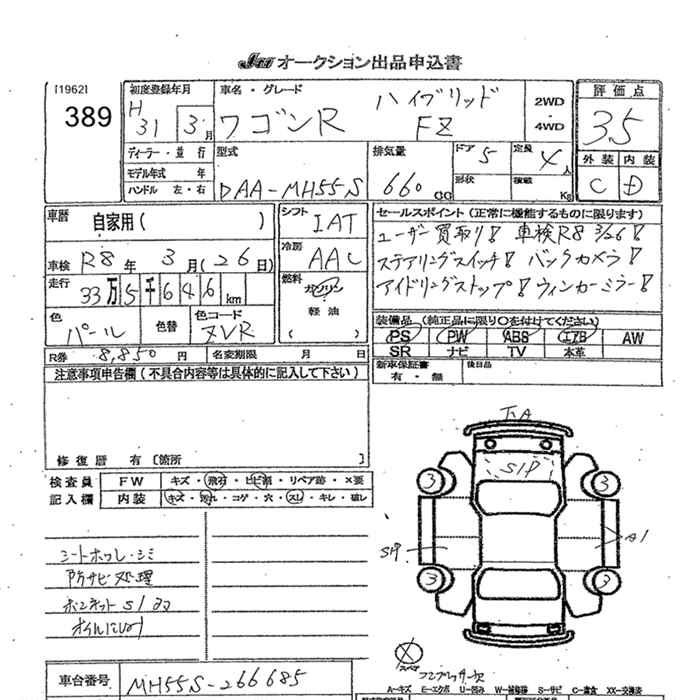 JU オークション出品申込書
[1962]
389
初度登録年月
H 31 3月
車名・グレード
ワゴンR ハイブリッド FZ
2WD
・
4WD
評価点
3.5
外装 内装
C D
ディーラー・並行
モデル年式 年
ハンドル 左・右
型式
DAA-MH55S
排気量
660 CC
ドア 5
形状
定員 4人
積載 Kg
車歴
自家用( )
車検 R8年 3月(26日)
走行
33万5千646km
シフト IAT
冷房 AAC
燃料
ガソリン
軽油
( )
色 パール
色替
色コード ZVR
R券 8,850円
名変期限 月 日
セールスポイント(正常に機能するものに限ります)
ユーザー買取り! 車検R8 3/26!
ステアリングスイッチ! バックカメラ!
アイドリングストップ! ウィンカーミラー!
装備品(純正品に限り○を付けてください)
PS PW ABS エアB AW
SR ナビ TV 本革
新車保証書
有・無
後日品
注意事項申告欄(不具合内容等は具体的に記入して下さい)
修復歴 有 [箇所
検査員
記入欄
FW キズ・飛石・ヒビ割・リペア跡・×要
内装 キズ・汚れ・コゲ・穴・スレ・キレ・破レ
シートホツレ・シミ
防サビ処理
ボンネットS1ヨコ
オイルにじみ
下回A
S1P
3 3
S1P
A1
3 3
スペア
コンプレッサー欠
車台番号 MH55S-266685
A-キズ E-エクボ U-凹み W-補修跡 S-サビ C-腐食 XX-交換済